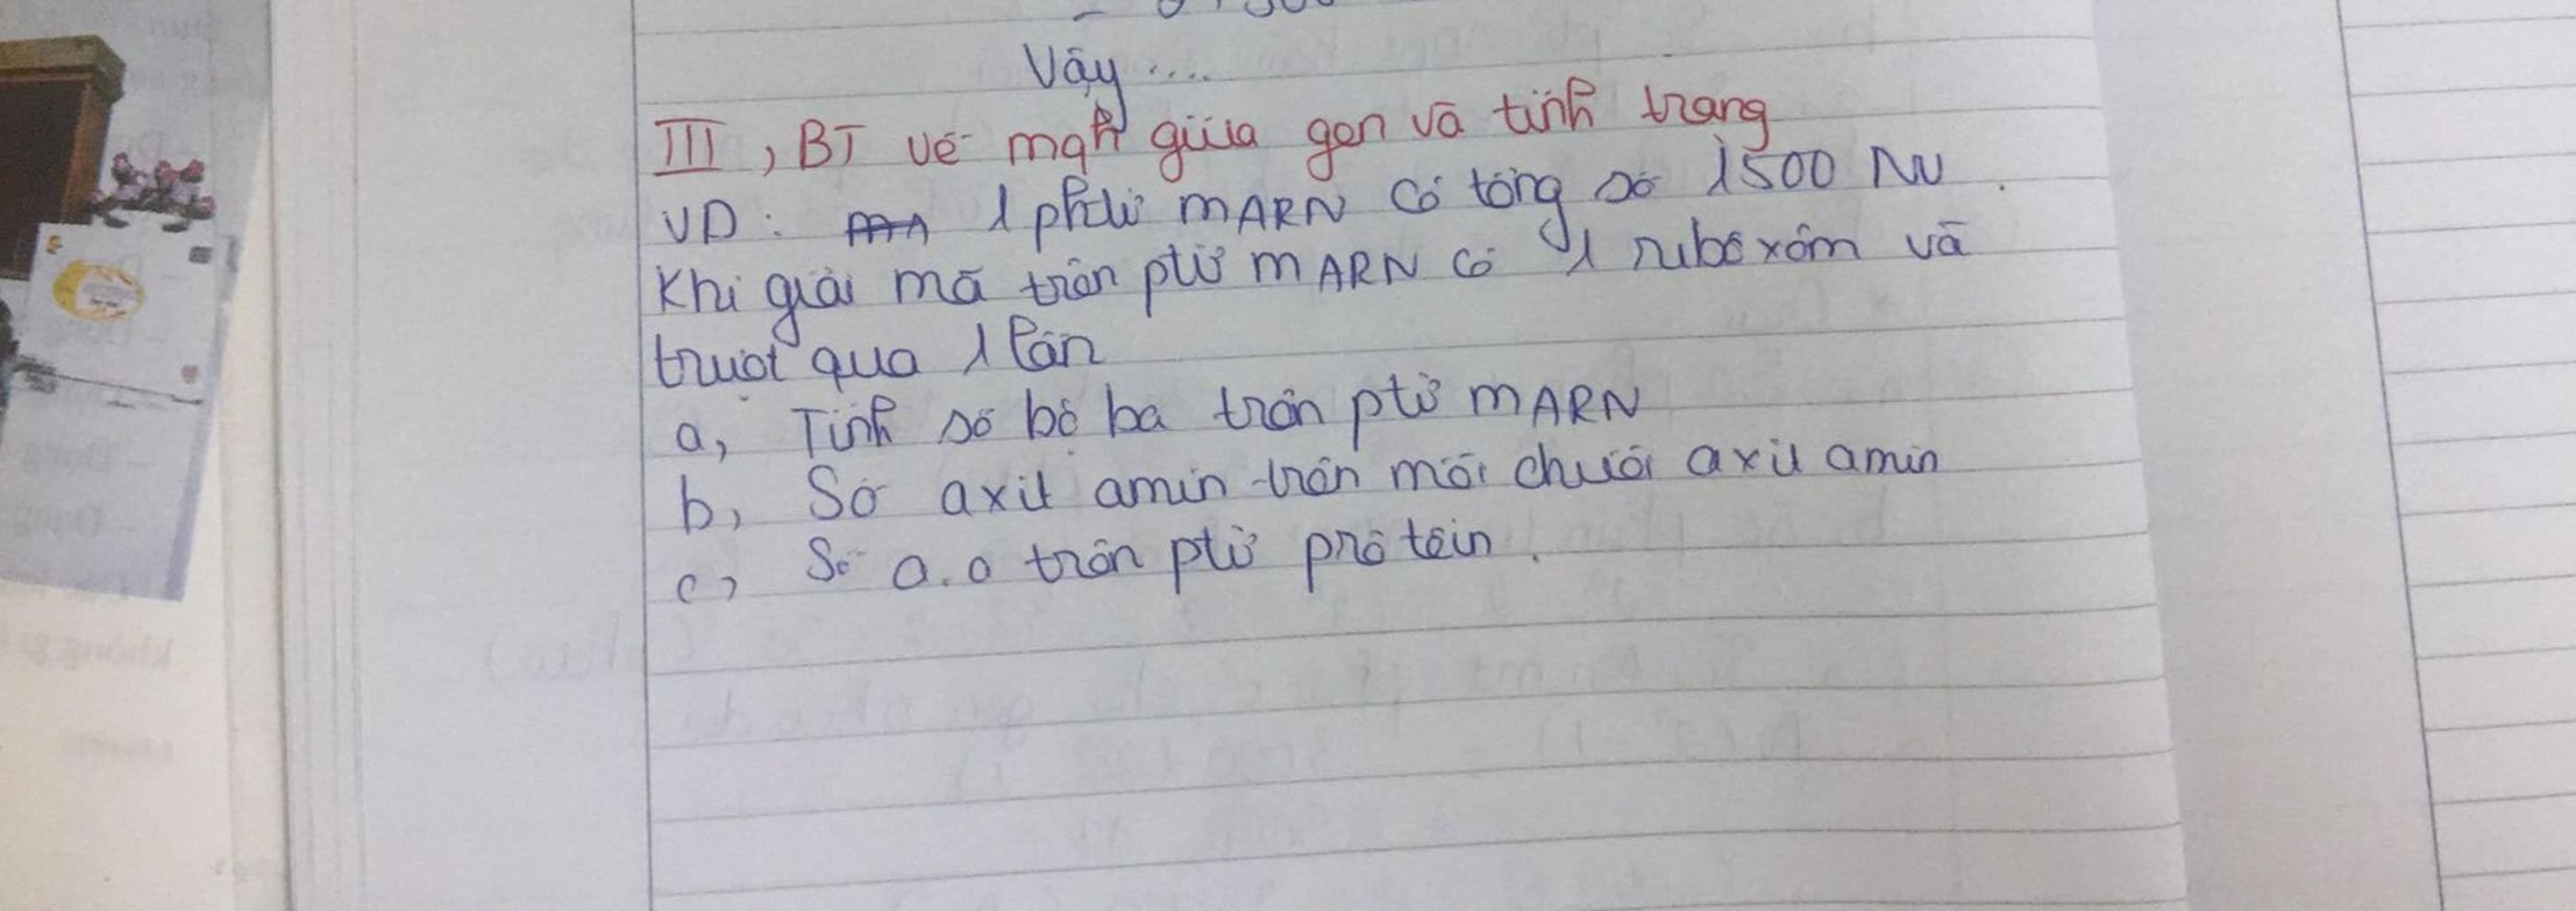 Vậy ....
III, BT về mqh giữa gen và tính trạng
VD: 1 phtử mARN có tổng số 1500 Nu.
Khi giải mã trên ptử mARN có 1 ribôxôm và
trượt qua 1 lần
a, Tính số bộ ba trên ptử mARN
b, Số axit amin trên mỗi chuỗi axit amin
c, Số a.a trên ptử prôtêin.